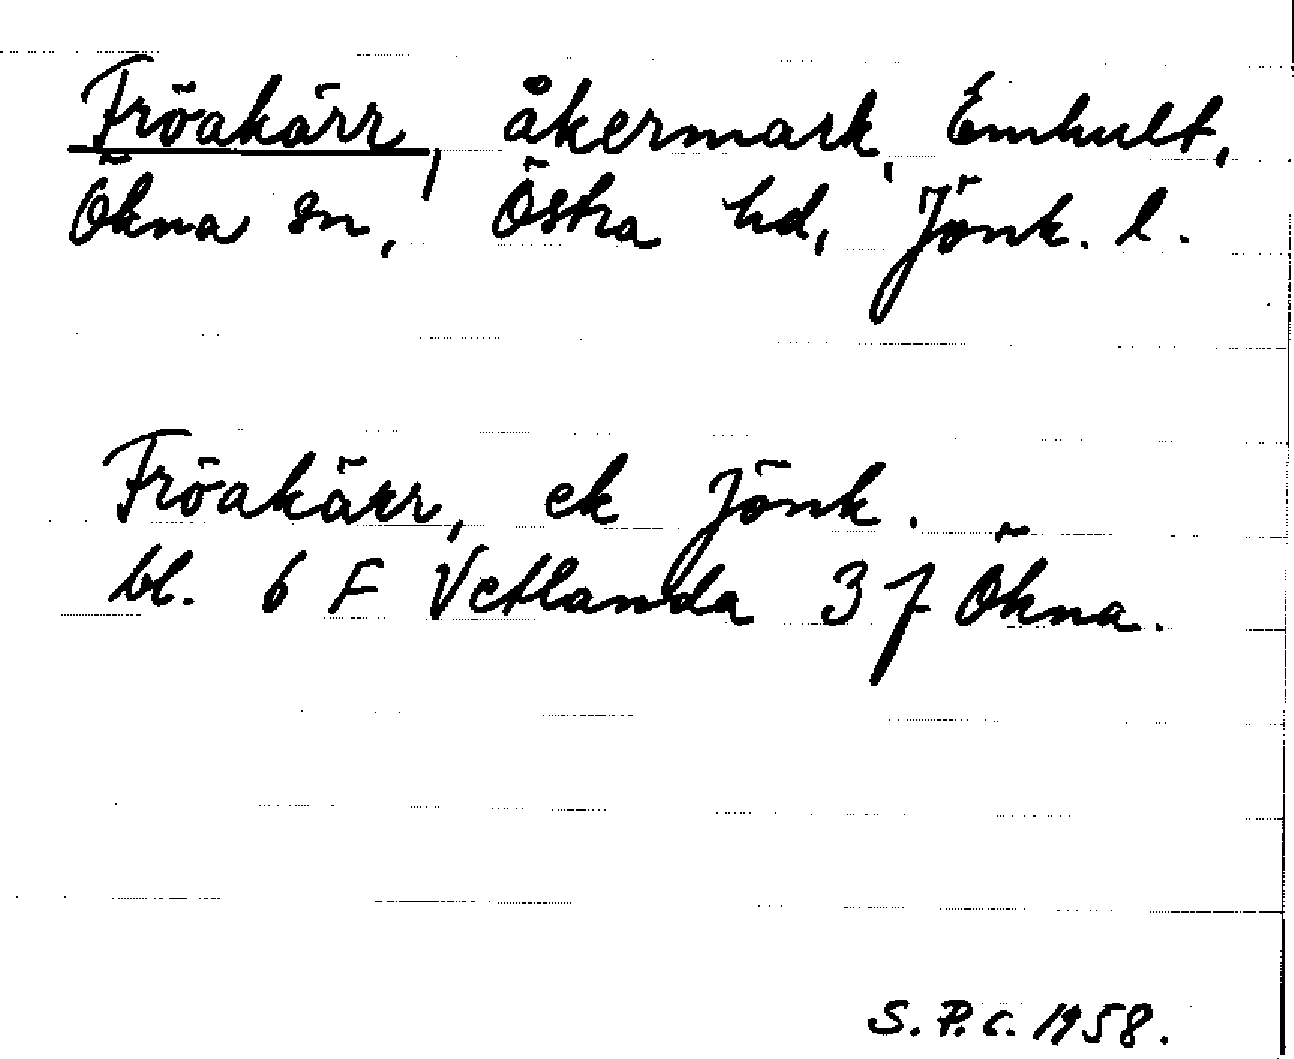 Fröakärr, åkermark, Emhult,
Ökna sn, Östra hd, Jönk. l.
Fröakärr, ek Jönk.
bl. 6 F Vetlanda 3 f Ökna.
S. P. C. 1958.